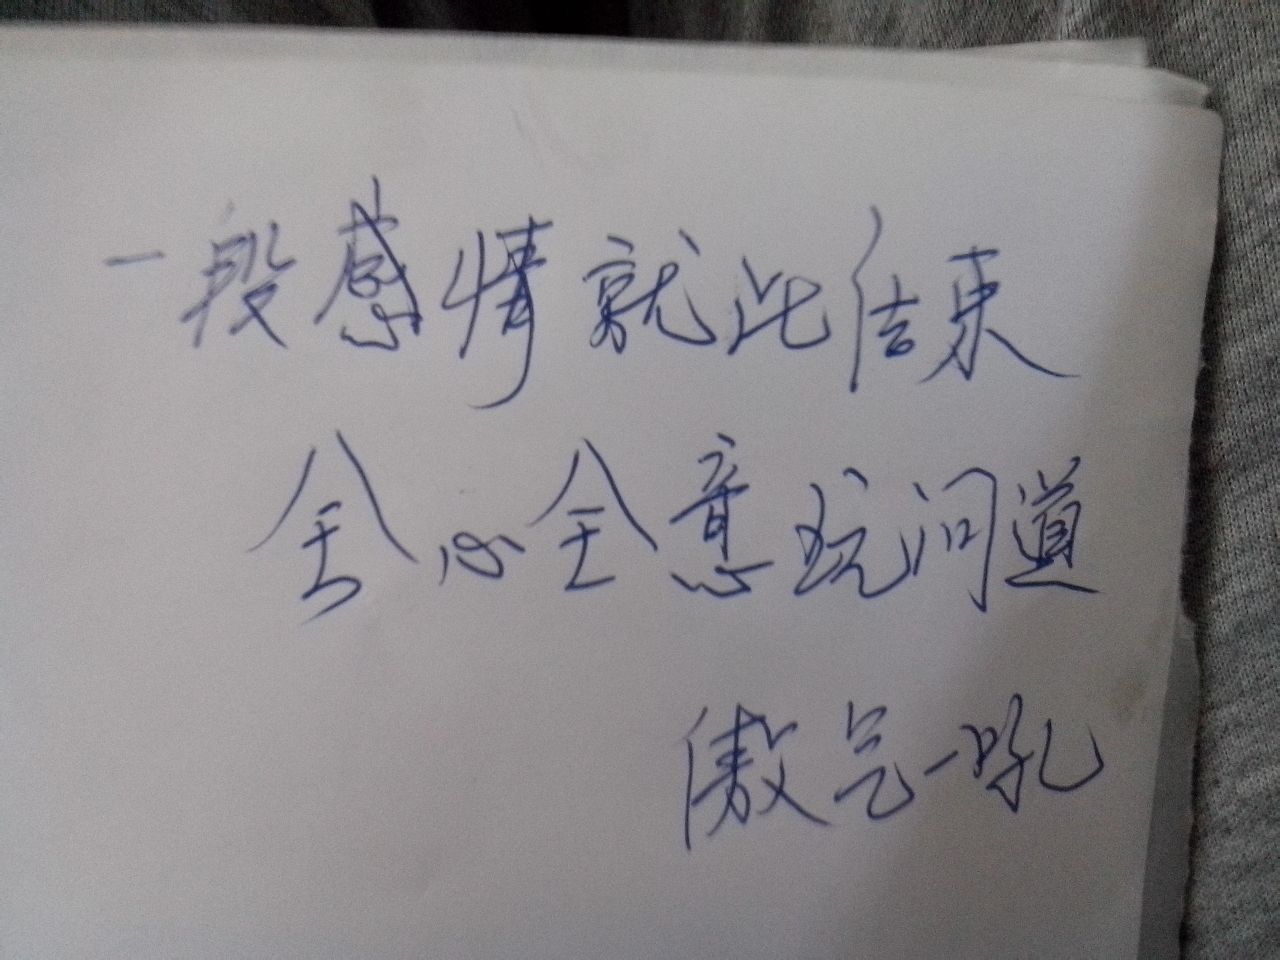 一段感情就此结束
全心全意玩问道
傲气一吼